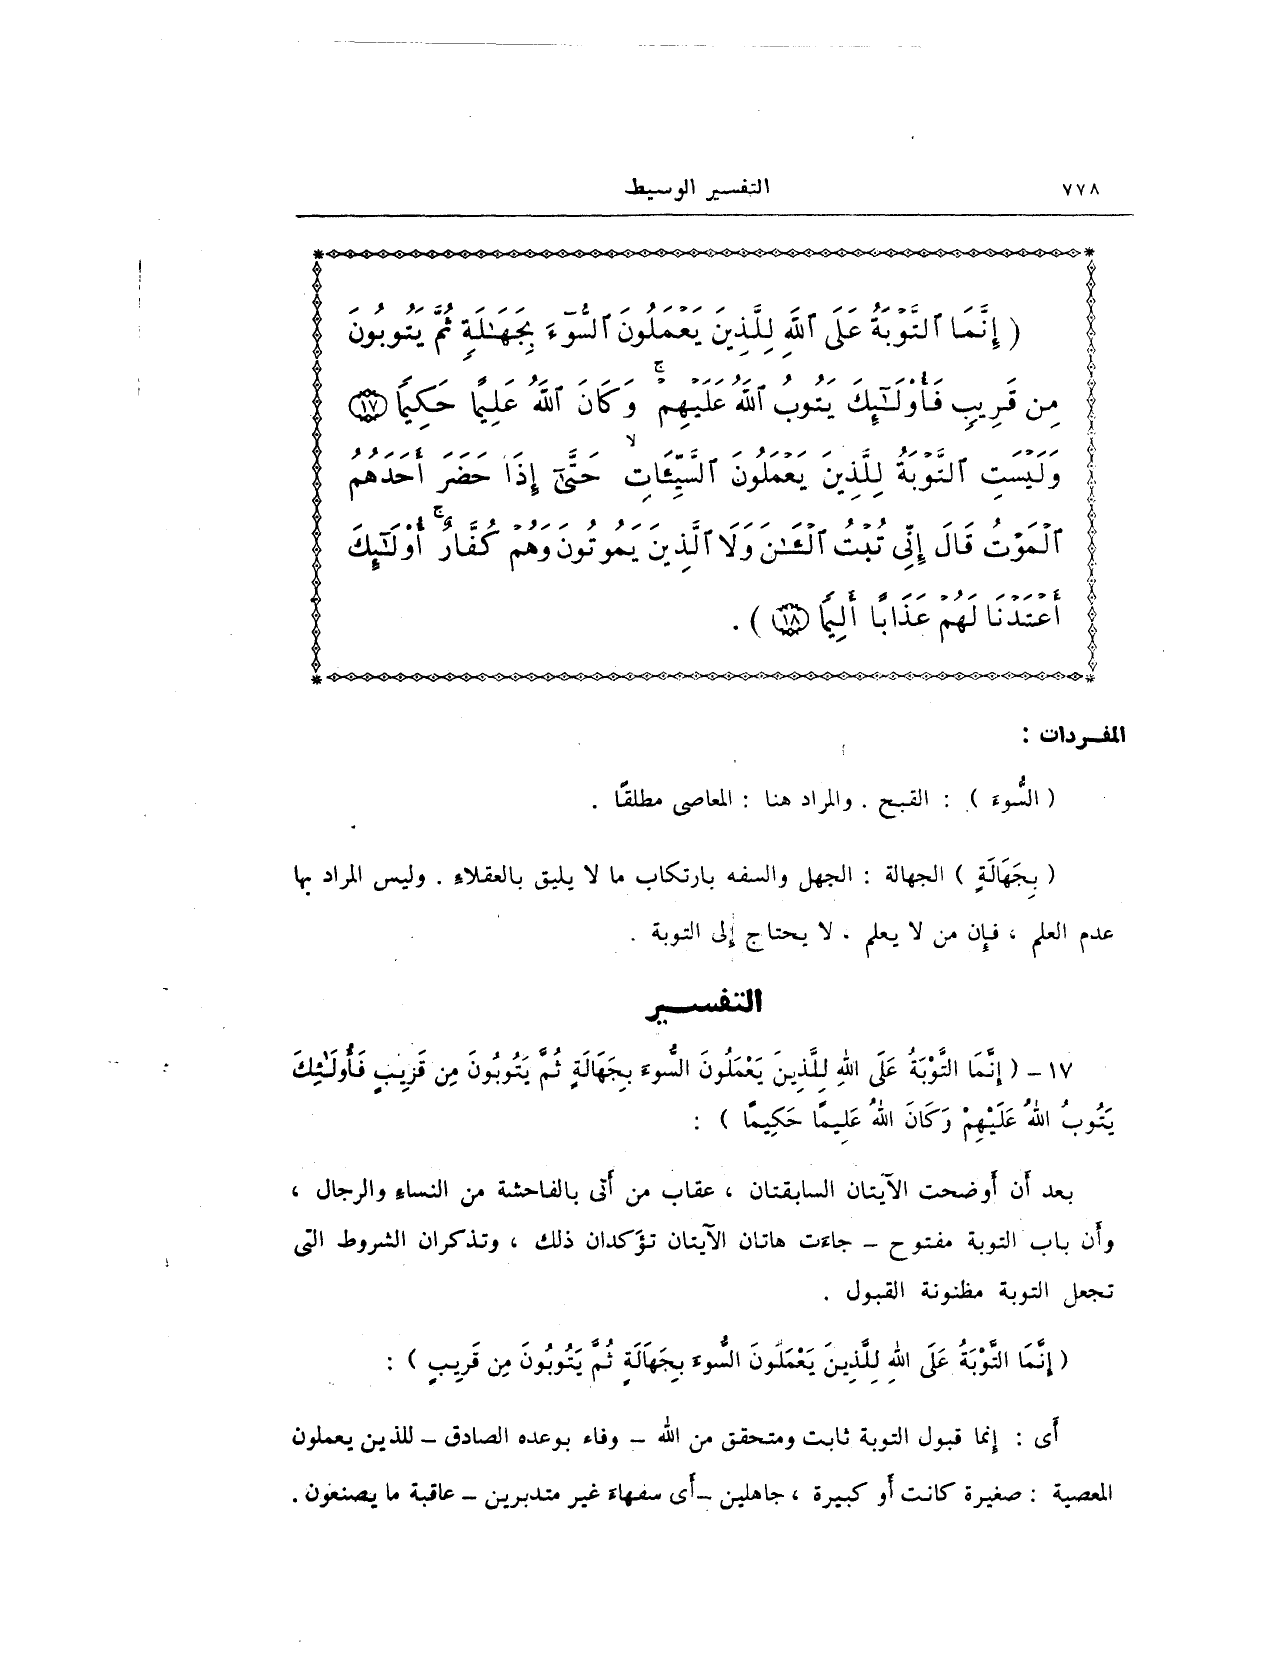 ٧٧٨
التفسير الوسيط
( إِنَّمَا ٱلتَّوْبَةُ عَلَى ٱللَّهِ لِلَّذِينَ يَعْمَلُونَ ٱلسُّوٓءَ بِجَهَٰلَةٍ ثُمَّ يَتُوبُونَ
مِن قَرِيبٍ فَأُوْلَٰٓئِكَ يَتُوبُ ٱللَّهُ عَلَيْهِمْ ۚ وَكَانَ ٱللَّهُ عَلِيمًا حَكِيمًا ١٧
وَلَيْسَتِ ٱلتَّوْبَةُ لِلَّذِينَ يَعْمَلُونَ ٱلسَّيِّـَٔاتِ ۙ حَتَّىٰٓ إِذَا حَضَرَ أَحَدَهُمُ
ٱلْمَوْتُ قَالَ إِنِّى تُبْتُ ٱلْـَٰٔنَ وَلَا ٱلَّذِينَ يَمُوتُونَ وَهُمْ كُفَّارٌ ۚ أُوْلَٰٓئِكَ
أَعْتَدْنَا لَهُمْ عَذَابًا أَلِيمًا ١٨ ) .
المفردات :
( السُّوءَ ) : القبيح . والمراد هنا : المعاصى مطلقًا .
( بِجَهَالَةٍ ) الجهالة : الجهل والسفه بارتكاب ما لا يليق بالعقلاء . وليس المراد بها
عدم العلم ، فإن من لا يعلم . لا يحتاج إلى التوبة .
التفسير
١٧ – ( إِنَّمَا التَّوْبَةُ عَلَى اللهِ لِلَّذِينَ يَعْمَلُونَ السُّوءَ بِجَهَالَةٍ ثُمَّ يَتُوبُونَ مِن قَرِيبٍ فَأُولَٰئِكَ
يَتُوبُ اللهُ عَلَيْهِمْ وَكَانَ اللهُ عَلِيمًا حَكِيمًا ) :
بعد أن أوضحت الآيتان السابقتان ، عقاب من أتى بالفاحشة من النساء والرجال ،
وأن باب التوبة مفتوح – جاءت هاتان الآيتان تؤكدان ذلك ، وتذكران الشروط التى
تجعل التوبة مظنونة القبول .
( إِنَّمَا التَّوْبَةُ عَلَى اللهِ لِلَّذِينَ يَعْمَلُونَ السُّوءَ بِجَهَالَةٍ ثُمَّ يَتُوبُونَ مِن قَرِيبٍ ) :
أى : إنما قبول التوبة ثابت ومتحقق من الله – وفاء بوعده الصادق – للذين يعملون
المعصية : صغيرة كانت أو كبيرة ، جاهلين –أى سفهاء غير متدبرين – عاقبة ما يصنعون .